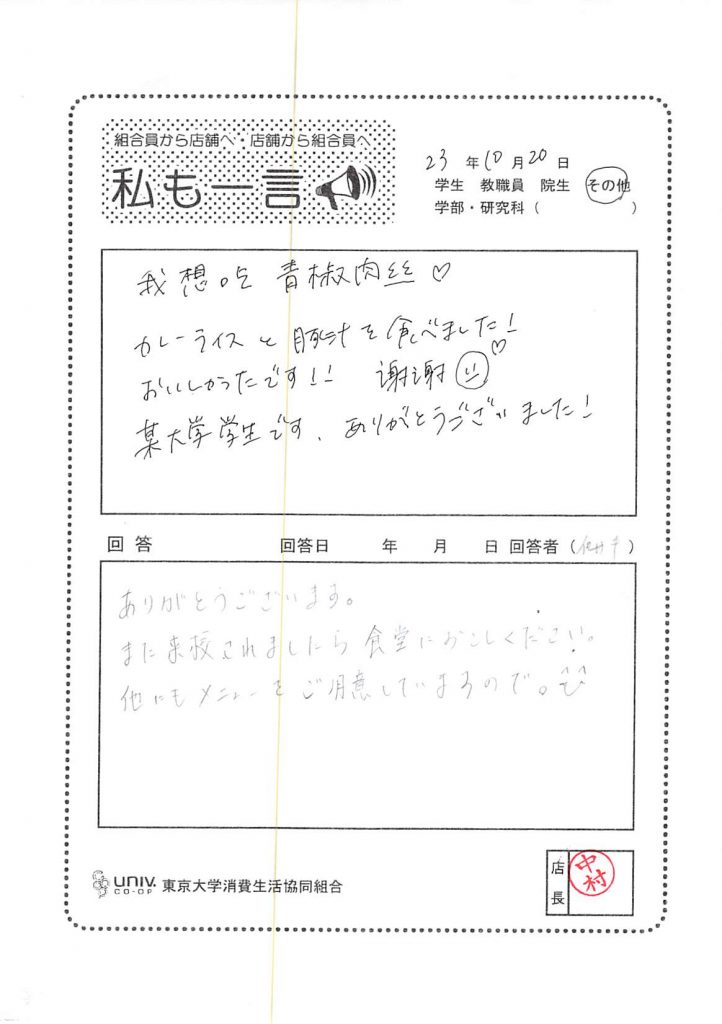 組合員から店舗へ・店舗から組合員へ
私も一言
23年10月20日
学生 教職員 院生 その他
学部・研究科( )
我想吃 青椒肉丝♡
カレーライスと豚汁を食べました!
おいしかったです!! 谢谢♡
某大学学生です、ありがとうございました!
回答 回答日 年 月 日 回答者( )
ありがとうございます。
また来校されましたら食堂におこしください。
他にもメニューをご用意していますので。
UNIV. CO-OP 東京大学消費生活協同組合
店長 中村